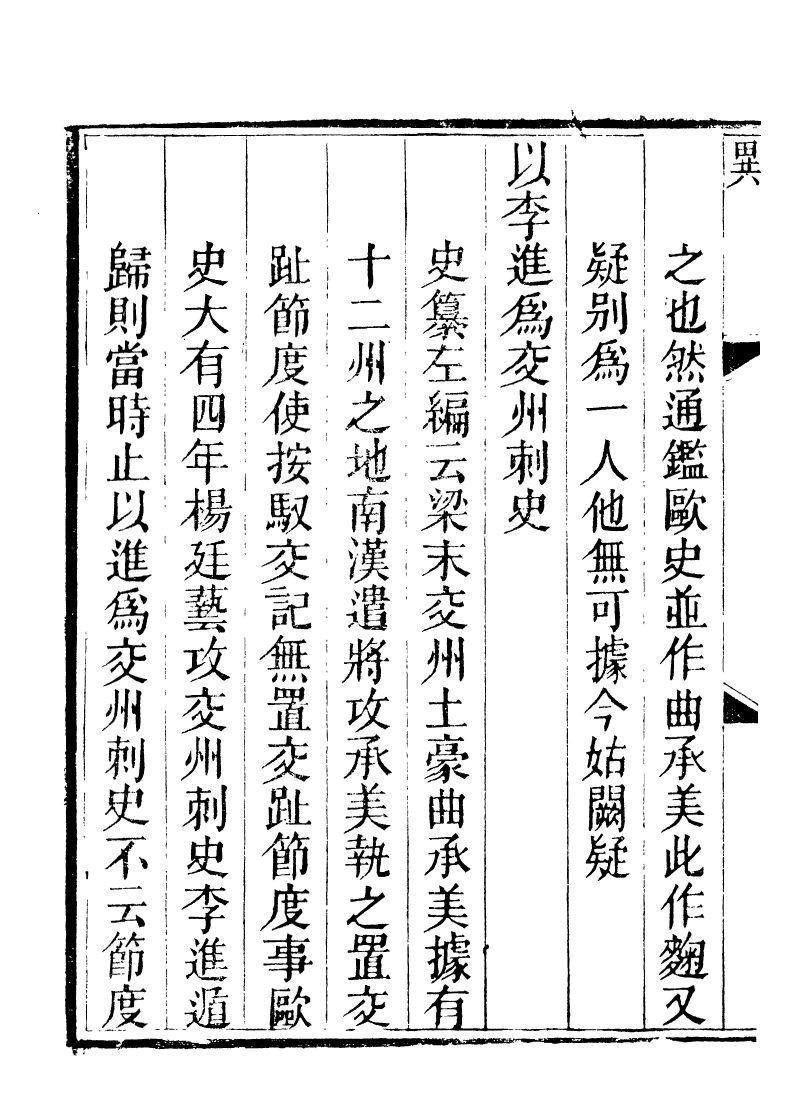 異
之也然通鑑歐史並作曲承美此作麴又
疑别為一人他無可據今姑闕疑
以李進為交州刺史
史纂左編云梁末交州土豪曲承美據有
十二州之地南漢遣將攻承美執之置交
趾節度使按馭交記無置交趾節度事歐
史大有四年楊廷藝攻交州刺史李進遁
歸則當時止以進為交州刺史不云節度